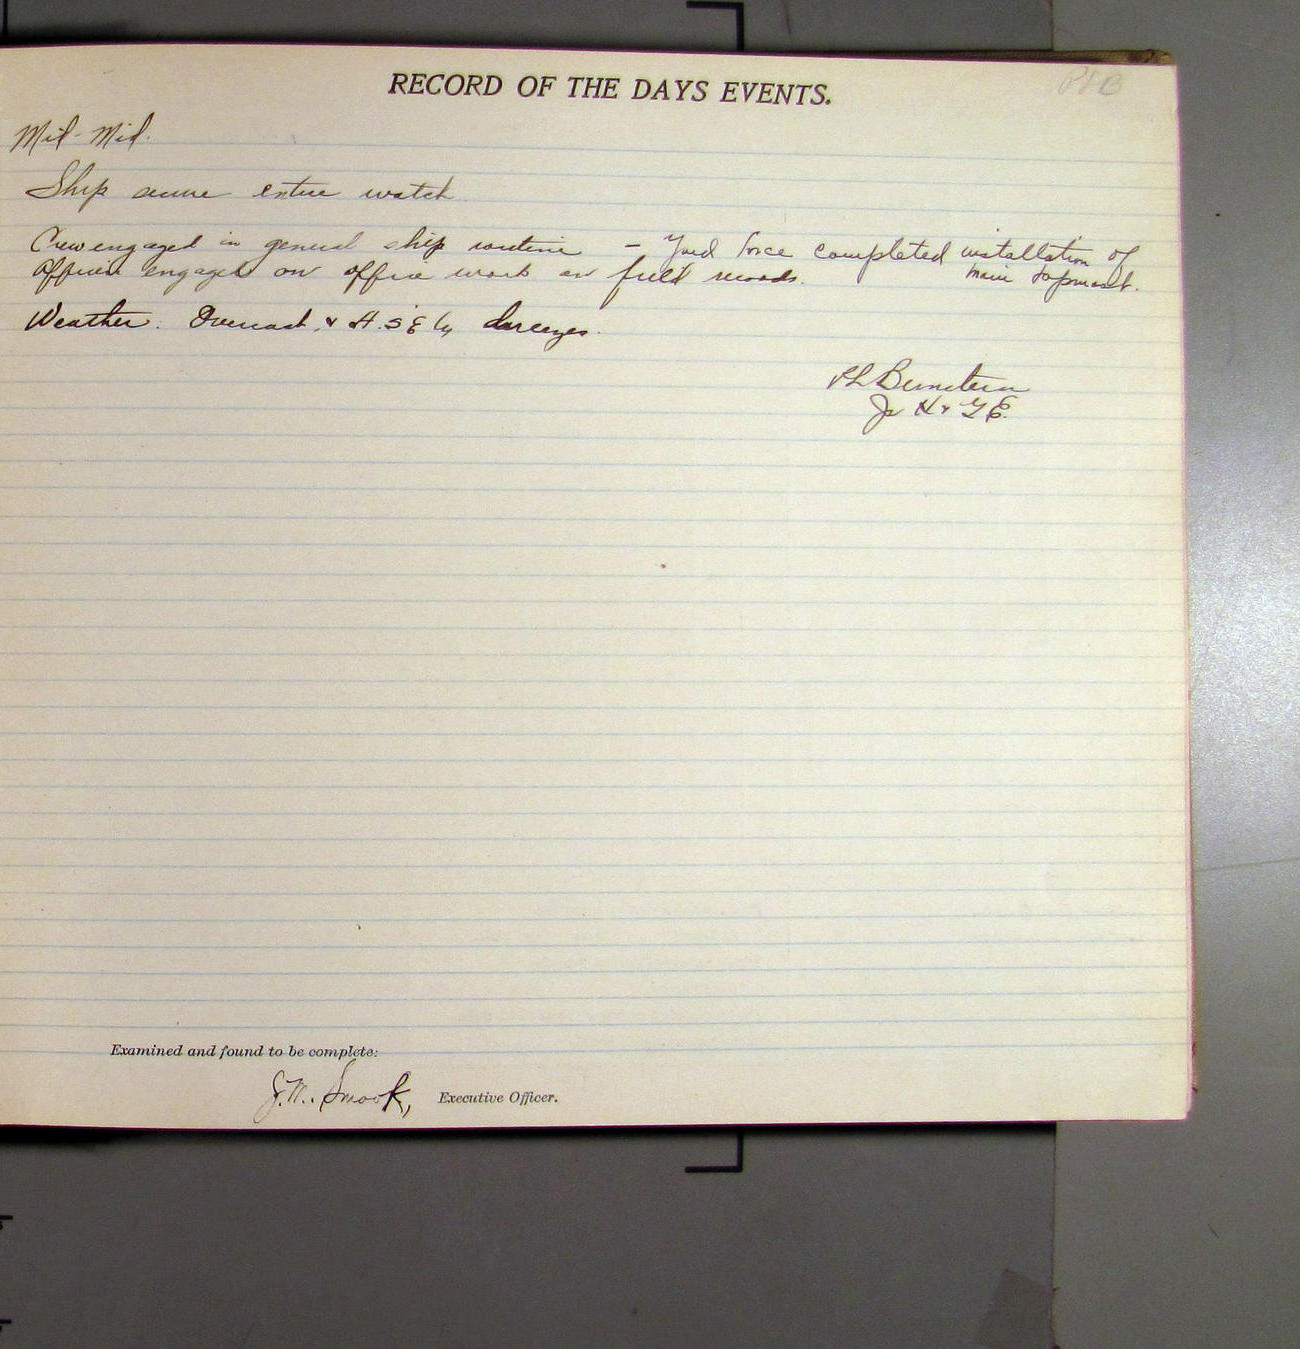 RECORD OF THE DAYS EVENTS.
PLB
Mid-Mid.
Ship secure entire watch
Crew engaged in general ship routine – Yard force completed installation of
main topmast.
Officers engaged on office work on field records.
Weather: Overcast, & SE'ly breezes.
PL Bernstein
Jr H & G E.
Examined and found to be complete:
J.M. Smook, Executive Officer.